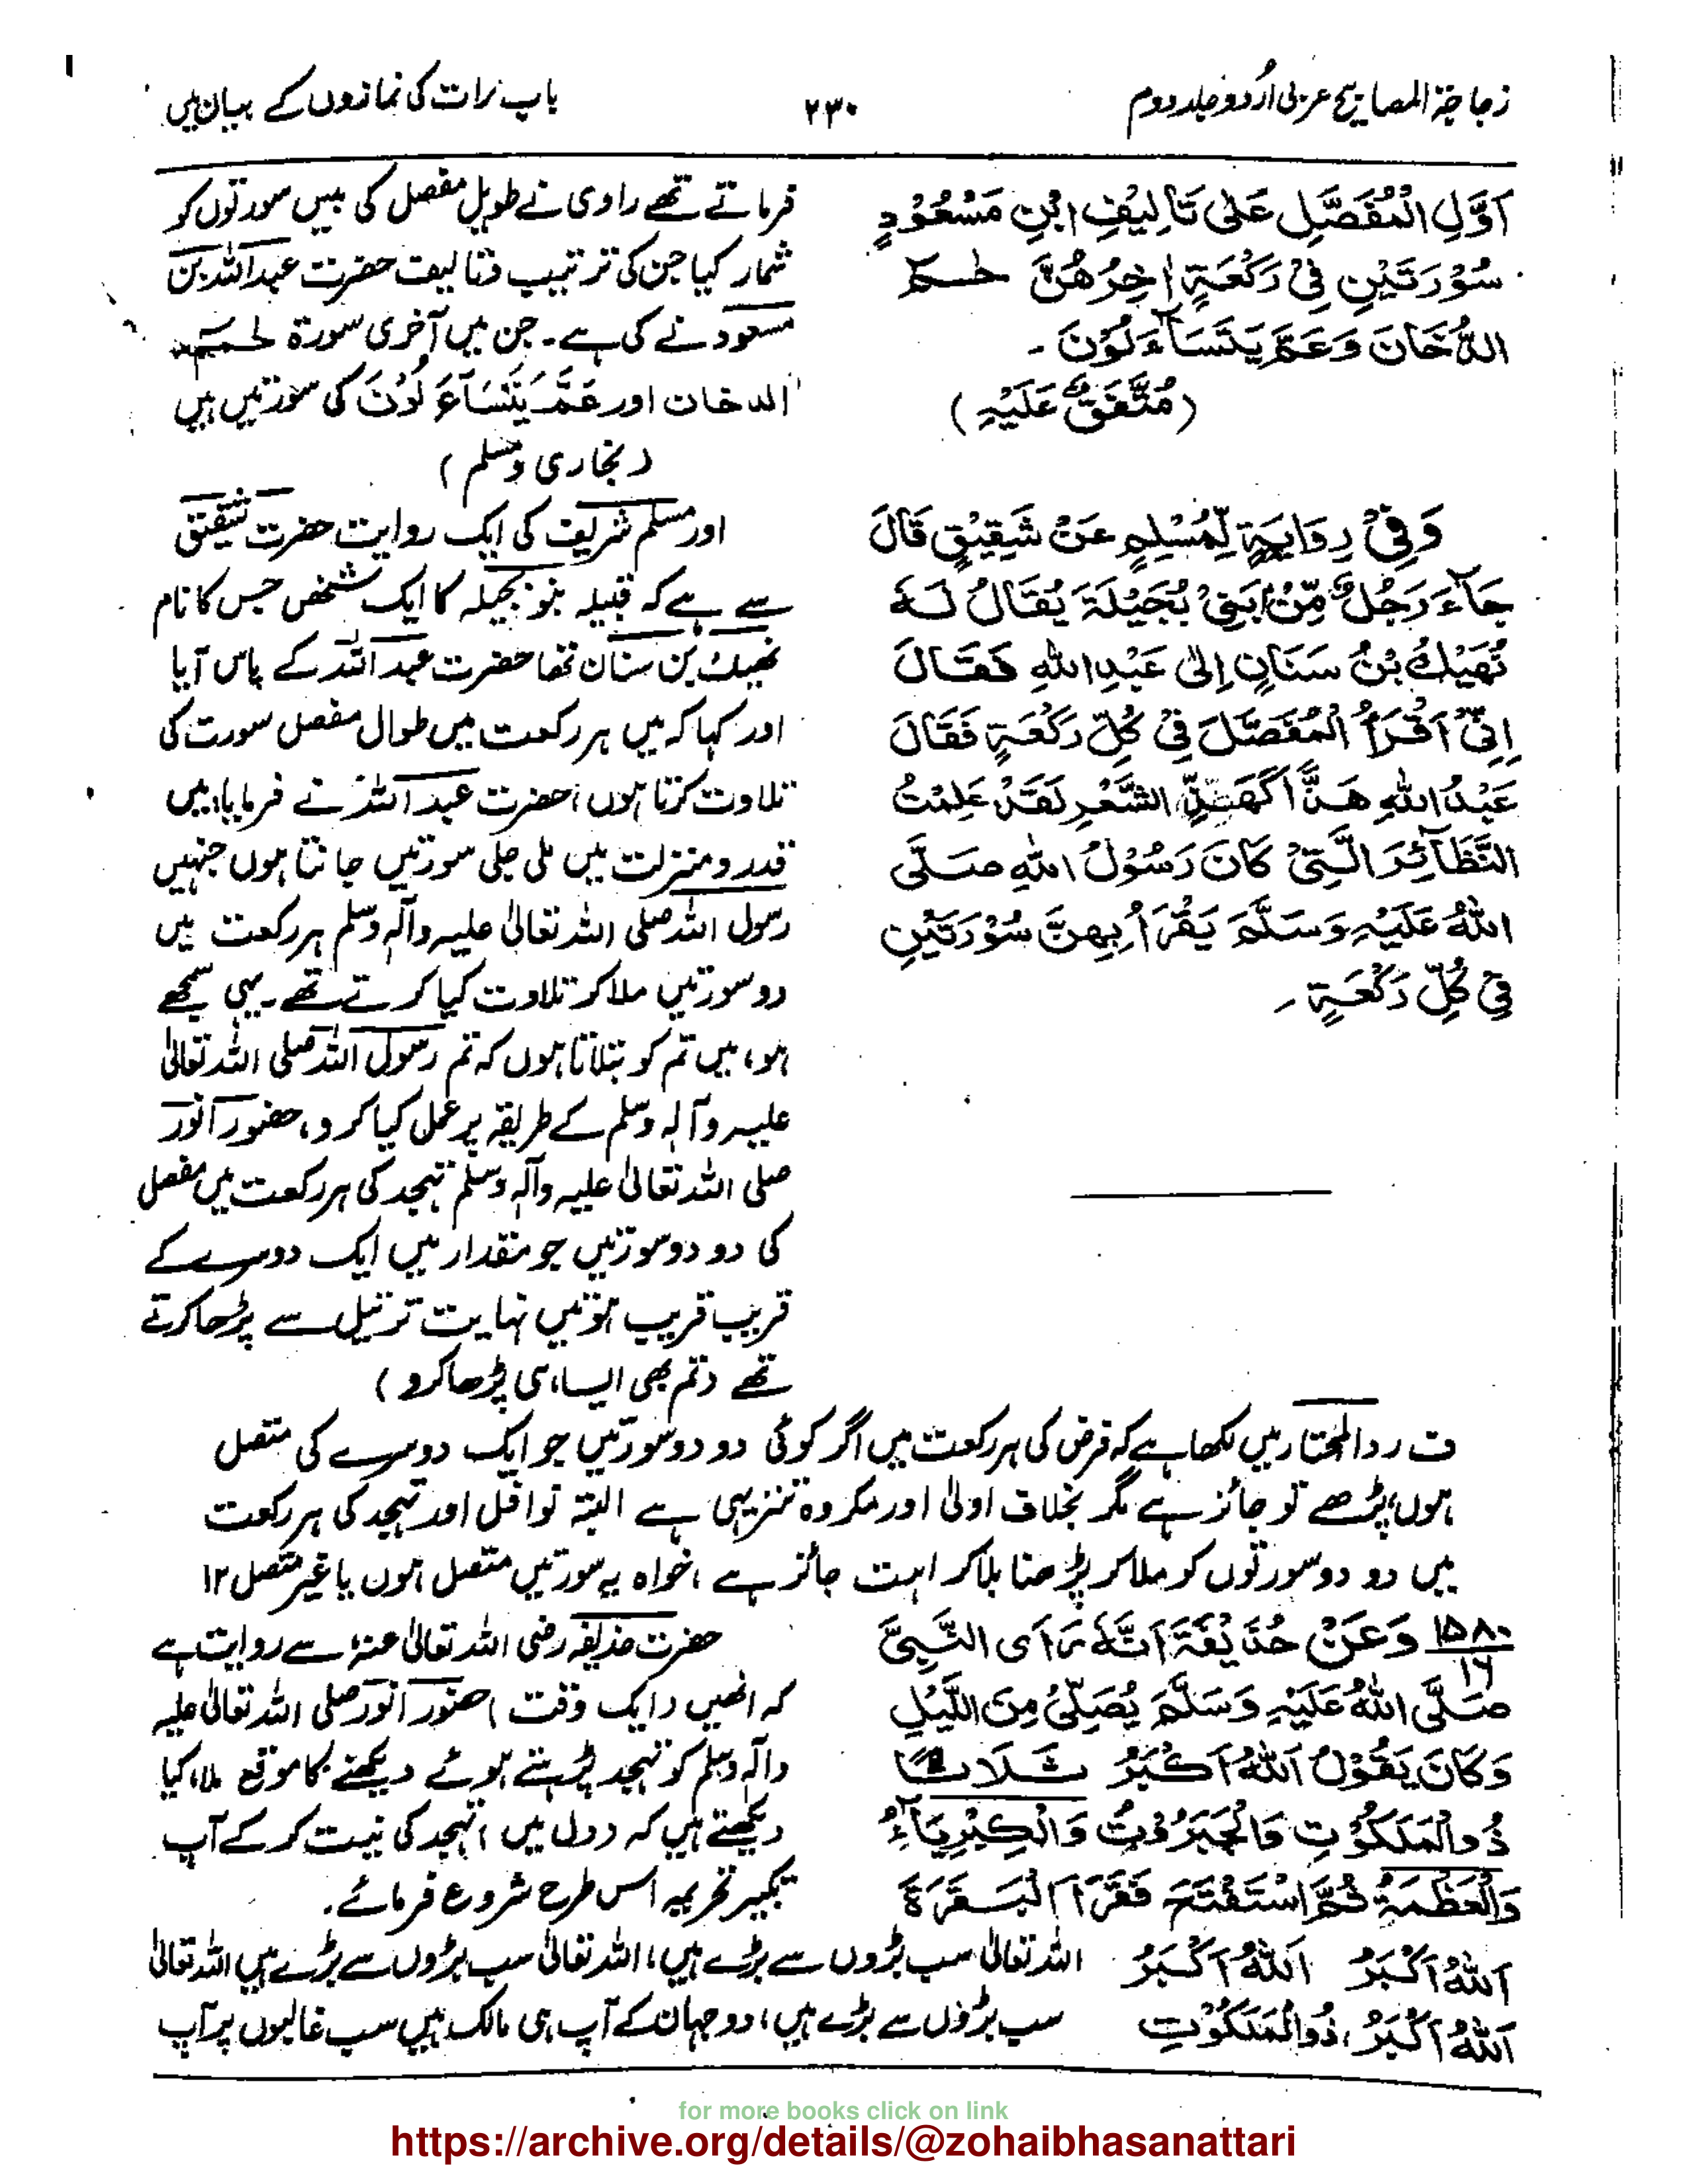 زجاجۃ المصابیح عربی اُردو جلد دوم
۲۳۰
باب رات کی نمازوں کے بیان میں
اَوَّلِ الْمُفَصَّلِ عَلٰی تَاْلِیْفِ ابْنِ مَسْعُوْدٍ
سُوْرَتَیْنِ فِیْ رَکْعَۃٍ اٰخِرُھُنَّ حٰمٓ
الدُّخَانَ وَعَمَّ یَتَسَآءَلُوْنَ۔
(مُتَّفَقٌ عَلَیْہِ)
وَفِیْ رِوَایَۃٍ لِّمُسْلِمٍ عَنْ شَقِیْقٍ قَالَ
جَآءَ رَجُلٌ مِّنْ بَنِیْ بُجَیْلَۃَ یُقَالُ لَہٗ
نُھَیْكُ بْنُ سَنَانٍ اِلٰی عَبْدِ اللّٰہِ فَقَالَ
اِنِّیْ اَقْرَأُ الْمُفَصَّلَ فِیْ کُلِّ رَکْعَۃٍ فَقَالَ
عَبْدُ اللّٰہِ ھَذًّا کَھَذِّ الشَّعْرِ لَقَدْ عَلِمْتُ
النَّظَآئِرَ الَّتِیْ کَانَ رَسُوْلُ اللّٰہِ صَلَّی
اللّٰہُ عَلَیْہِ وَسَلَّمَ یَقْرَأُ بِھِنَّ سُوْرَتَیْنِ
فِیْ کُلِّ رَکْعَۃٍ۔
فرماتے تھے راوی نے طویل مفصل کی بیس سورتوں کو
شمار کیا جن کی ترتیب وتالیف حضرت عبداللہ بن
مسعود نے کی ہے۔ جن میں آخری سورۃ حٰمٓ
الدخان اور عَمَّ یَتَسَآءَلُوْنَ کی سورتیں ہیں
(بخاری ومسلم)
اور مسلم شریف کی ایک روایت حضرت شقیق
سے ہے کہ قبیلہ بنو بجیلہ کا ایک شخص جس کا نام
نھیك بن سنان تھا حضرت عبد اللہ کے پاس آیا
اور کہا کہ میں ہر رکعت میں طوال مفصل سورت کی
تلاوت کرتا ہوں، حضرت عبد اللہ نے فرمایا، میں
قدر و منزلت میں ملی جلی سورتیں جانتا ہوں جنہیں
رسول اللہ صلی اللہ تعالیٰ علیہ وآلہٖ وسلم ہر رکعت میں
دو سورتیں ملا کر تلاوت کیا کرتے تھے۔ یہی سمجھے
ہو، میں تم کو بتلاتا ہوں کہ تم رسول اللہ صلی اللہ تعالیٰ
علیہ وآلہٖ وسلم کے طریقہ پر عمل کیا کرو، حضور انور
صلی اللہ تعالیٰ علیہ وآلہٖ وسلم تہجد کی ہر رکعت میں مفصل
کی دو دو سورتیں جو مقدار میں ایک دوسرے کے
قریب قریب ہوتیں نہایت ترتیل سے پڑھا کرتے
تھے (تم بھی ایسا ہی پڑھا کرو)
ف ردالمحتار میں لکھا ہے کہ فرض کی ہر رکعت میں اگر کوئی دو دو سورتیں جو ایک دوسرے کی متصل
ہوں، پڑھے تو جائز ہے مگر بخلاف اولیٰ اور مکروہ تنزیہی ہے البتہ نوافل اور تہجد کی ہر رکعت
میں دو دو سورتوں کو ملا کر پڑھنا بلا کراہت جائز ہے، خواہ یہ سورتیں متصل ہوں یا غیر متصل ۱۲
۱۵۸۰
۱۶
وَعَنْ حُذَیْفَۃَ اَنَّہٗ رَاَی النَّبِیَّ
صَلَّی اللّٰہُ عَلَیْہِ وَسَلَّمَ یُصَلِّیْ مِنَ اللَّیْلِ
وَکَانَ یَقُوْلُ اَللّٰہُ اَکْبَرُ ثَلَاثًا
ذُوالْمَلَکُوْتِ وَالْجَبَرُوْتِ وَالْکِبْرِیَآءِ
وَالْعَظْمَۃِ ثُمَّ اسْتَفْتَحَ فَقَرَأَ الْبَقَرَۃَ
حضرت حذیفہ رضی اللہ تعالیٰ عنہ سے روایت ہے
کہ انھیں (ایک وقت) حضور انور صلی اللہ تعالیٰ علیہ
وآلہٖ وسلم کو تہجد پڑھتے ہوئے دیکھنے کا موقع ملا، کیا
دیکھتے ہیں کہ (دل میں) تہجد کی نیت کر کے آپ
تکبیر تحریمہ اس طرح شروع فرمائے۔
اَللّٰہُ اَکْبَرُ اَللّٰہُ اَکْبَرُ اللہ تعالیٰ سب بڑوں سے بڑے ہیں، اللہ تعالیٰ سب بڑوں سے بڑے ہیں اللہ تعالیٰ
اَللّٰہُ اَکْبَرُ، ذُوالْمَلَکُوْتِ سب بڑوں سے بڑے ہیں، دو جہان کے آپ ہی مالک ہیں سب غالبوں پر آپ
for more books click on link
https://archive.org/details/@zohaibhasanattari